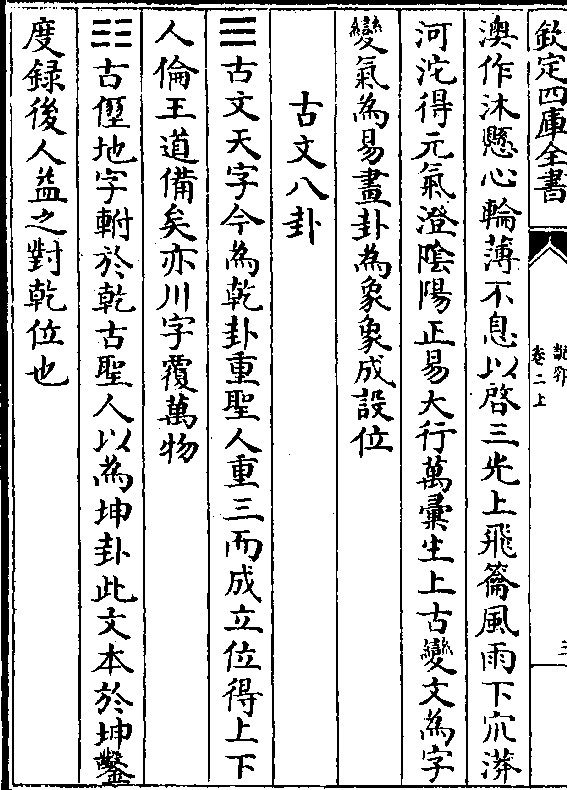 欽定四庫全書
說郛
卷二上
三
澳作沐懸心輪薄不息以啓三光上飛籥風雨下宂漭
河沱得元氣澄陰陽正易大行萬彚生上古變文為字
變氣為易畫卦為象象成設位
古文八卦
☰古文天字今為乾卦重聖人重三而成立位得上下
人倫王道備矣亦川字覆萬物
☷古𡉳地字軵於乾古聖人以為坤卦此文本於坤鑿
度録後人益之對乾位也